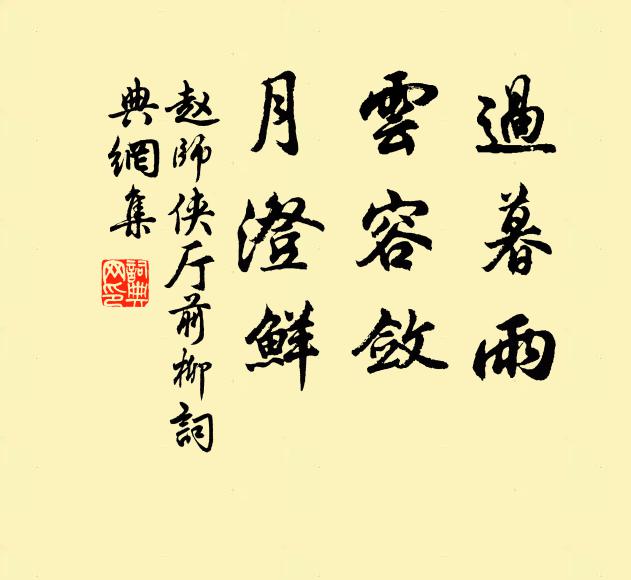 過暮雨
雲容斂
月澄鮮
赵師侠厅前柳詞
典網集
詞典
网印